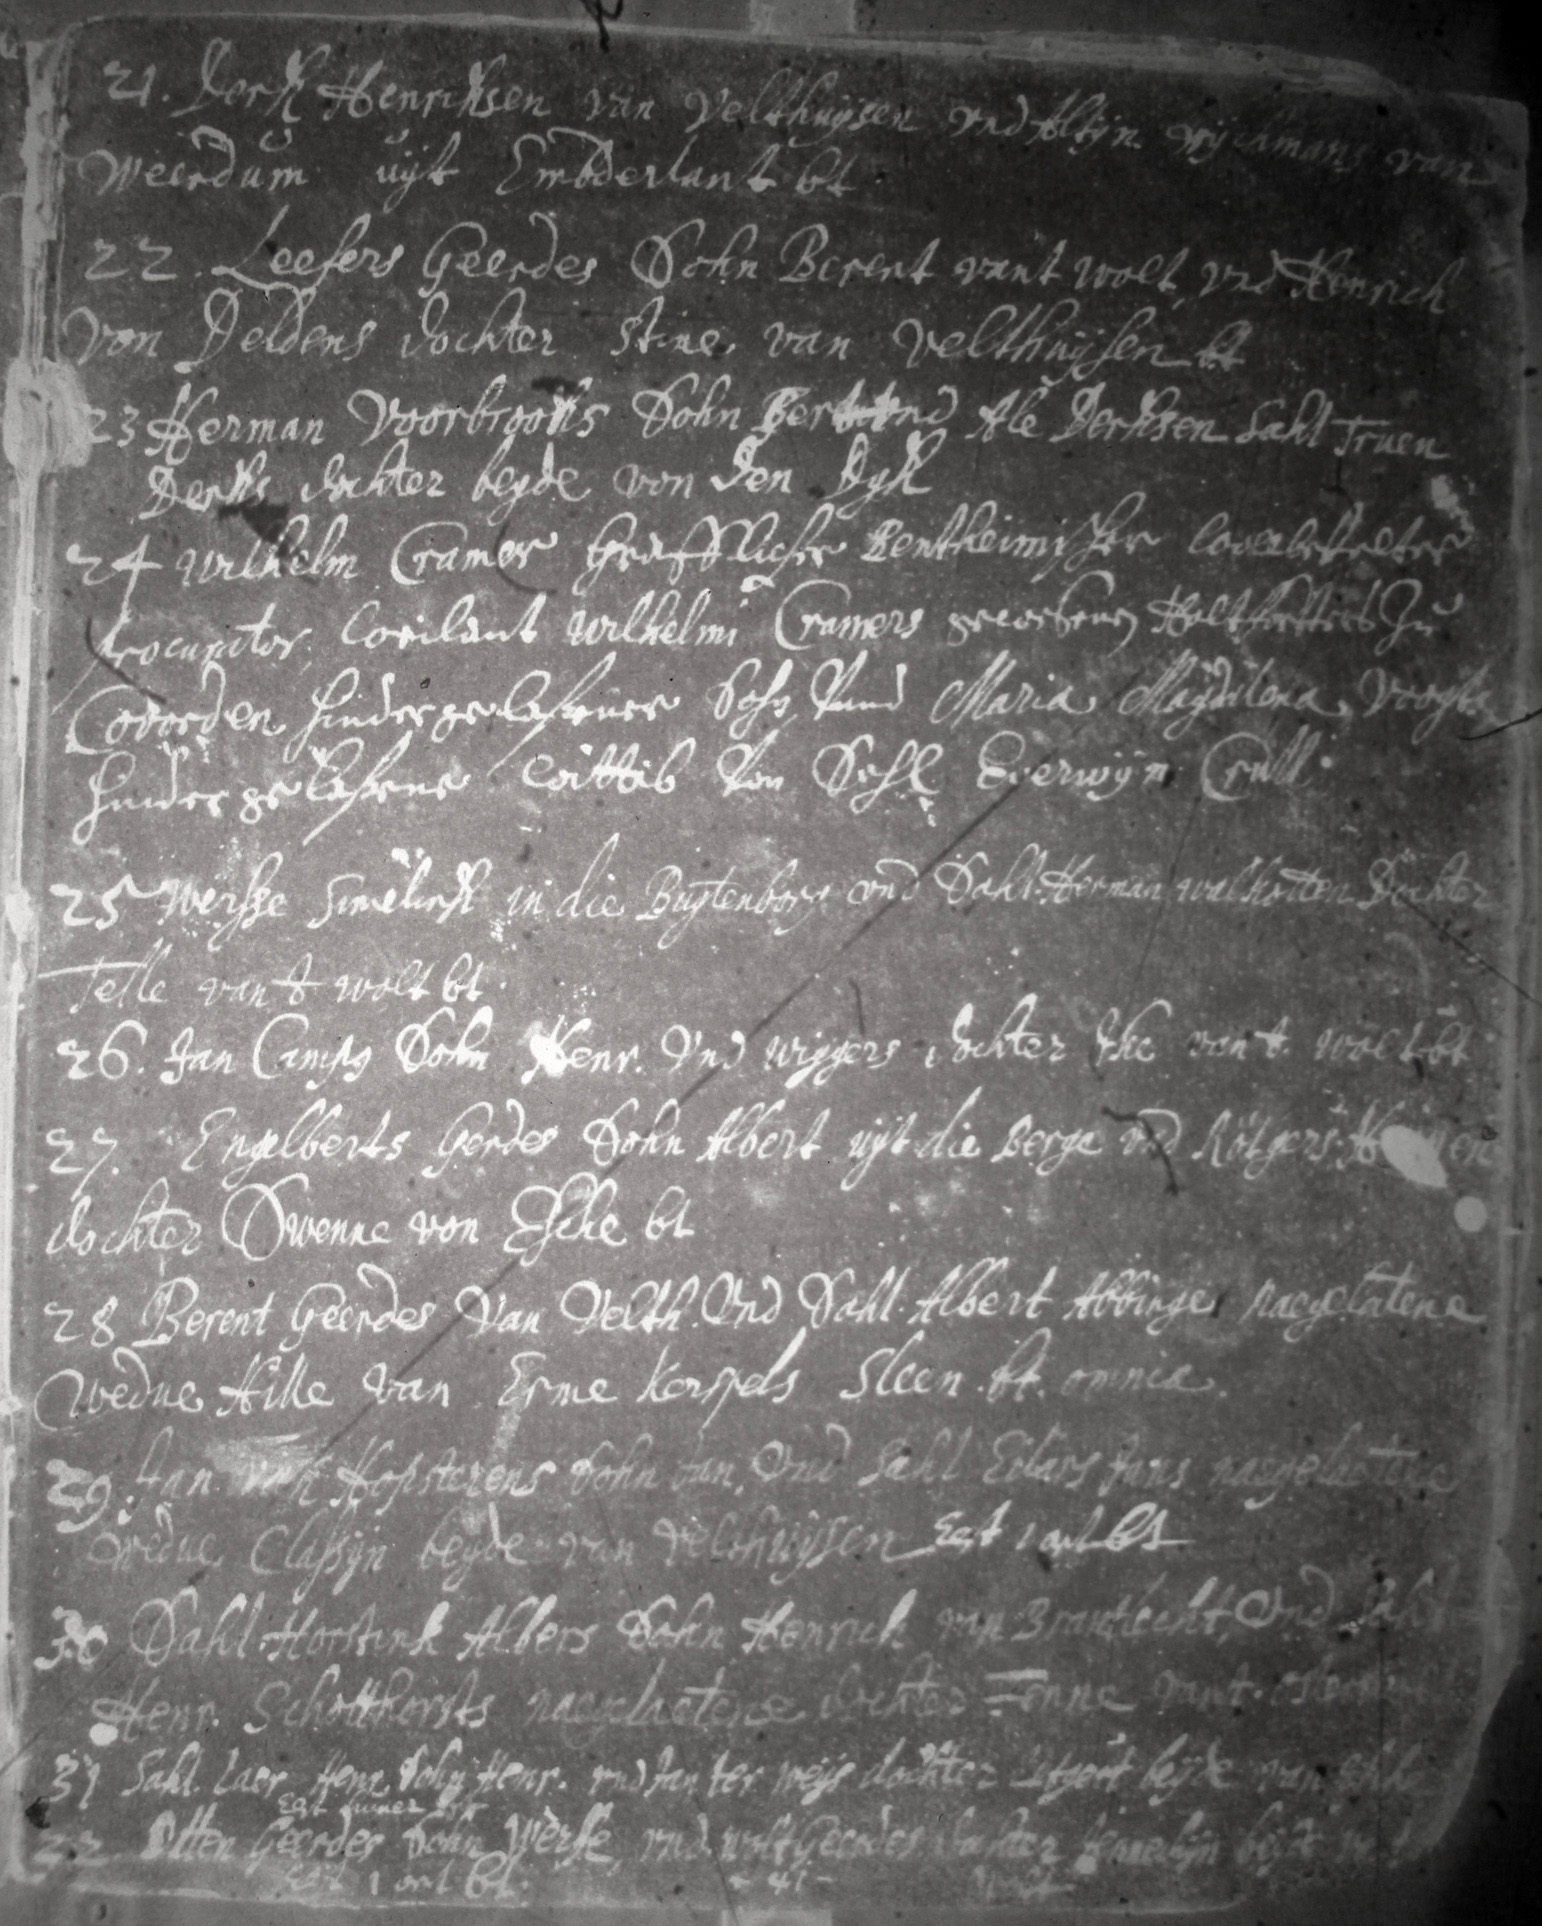 21. Derk Henriksen van Velthuysen und Altijn wijchmans van
Weerdum uijt Embderlant bt
22. Leefers Geerdes Sohn Berent vant wolt, und Henrich
Von Deldens dochter Stine van Velthuijsen bt
23 Herman Voorbrooks Sohn Bert und Ale Derksen Sahl Truen
Derks dochter beyde von den Dyk
24 Wilhelm Cramer Gräfflicher Bentheimischer
Procurator, Weilant Wilhelmi Cramers gewesenen zu
Covorden hindergelassener Sohn Vund Maria Magdalena Voogts
hindergelassene Wittib Von Sehl Everwijn Crull
25 Wersse Simelink in die Buytenborg und Sahl. Herman walkotten Dochter
Telle van t wolt bt
26. Jan Camps Sohn Henr. Und wiggers dochter van t. wolt bt
27. Engelberts Gerdes Sohn Albert uijt die Berge und Rötgers
dochter Swenne von Esche bt
28 Berent Geerdes Van Velth. Und Sahl. Albert Abbinge nacgelatene
Wedue Hille van Erme Kerspels Sleen. bt. omnia.
29. Jan Hofstetens Sohn Jan, Und Sahl Jans naegelaetene
Wedue Classijn beyde van Velthuijsen Egt 1 ort bt
30 Sahl. Horstink Albers Sohn Henrich van Brantlecht, Und Sahl
Henr. Schotthorsts naegelaetene dochter Fenne vant
31 Sahl. Laer Henr. Sohn Henr. und Jan ter weijs dochter beyde van Esche
Otten Geerdes Sohn Werse, und wolt Geerdes dochter
Egt 1 ort bt.